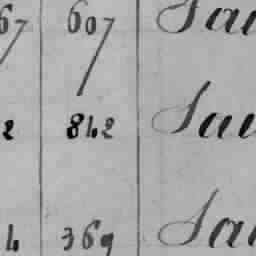 67 607 Sau
2 842 Sau
4 369 Sau